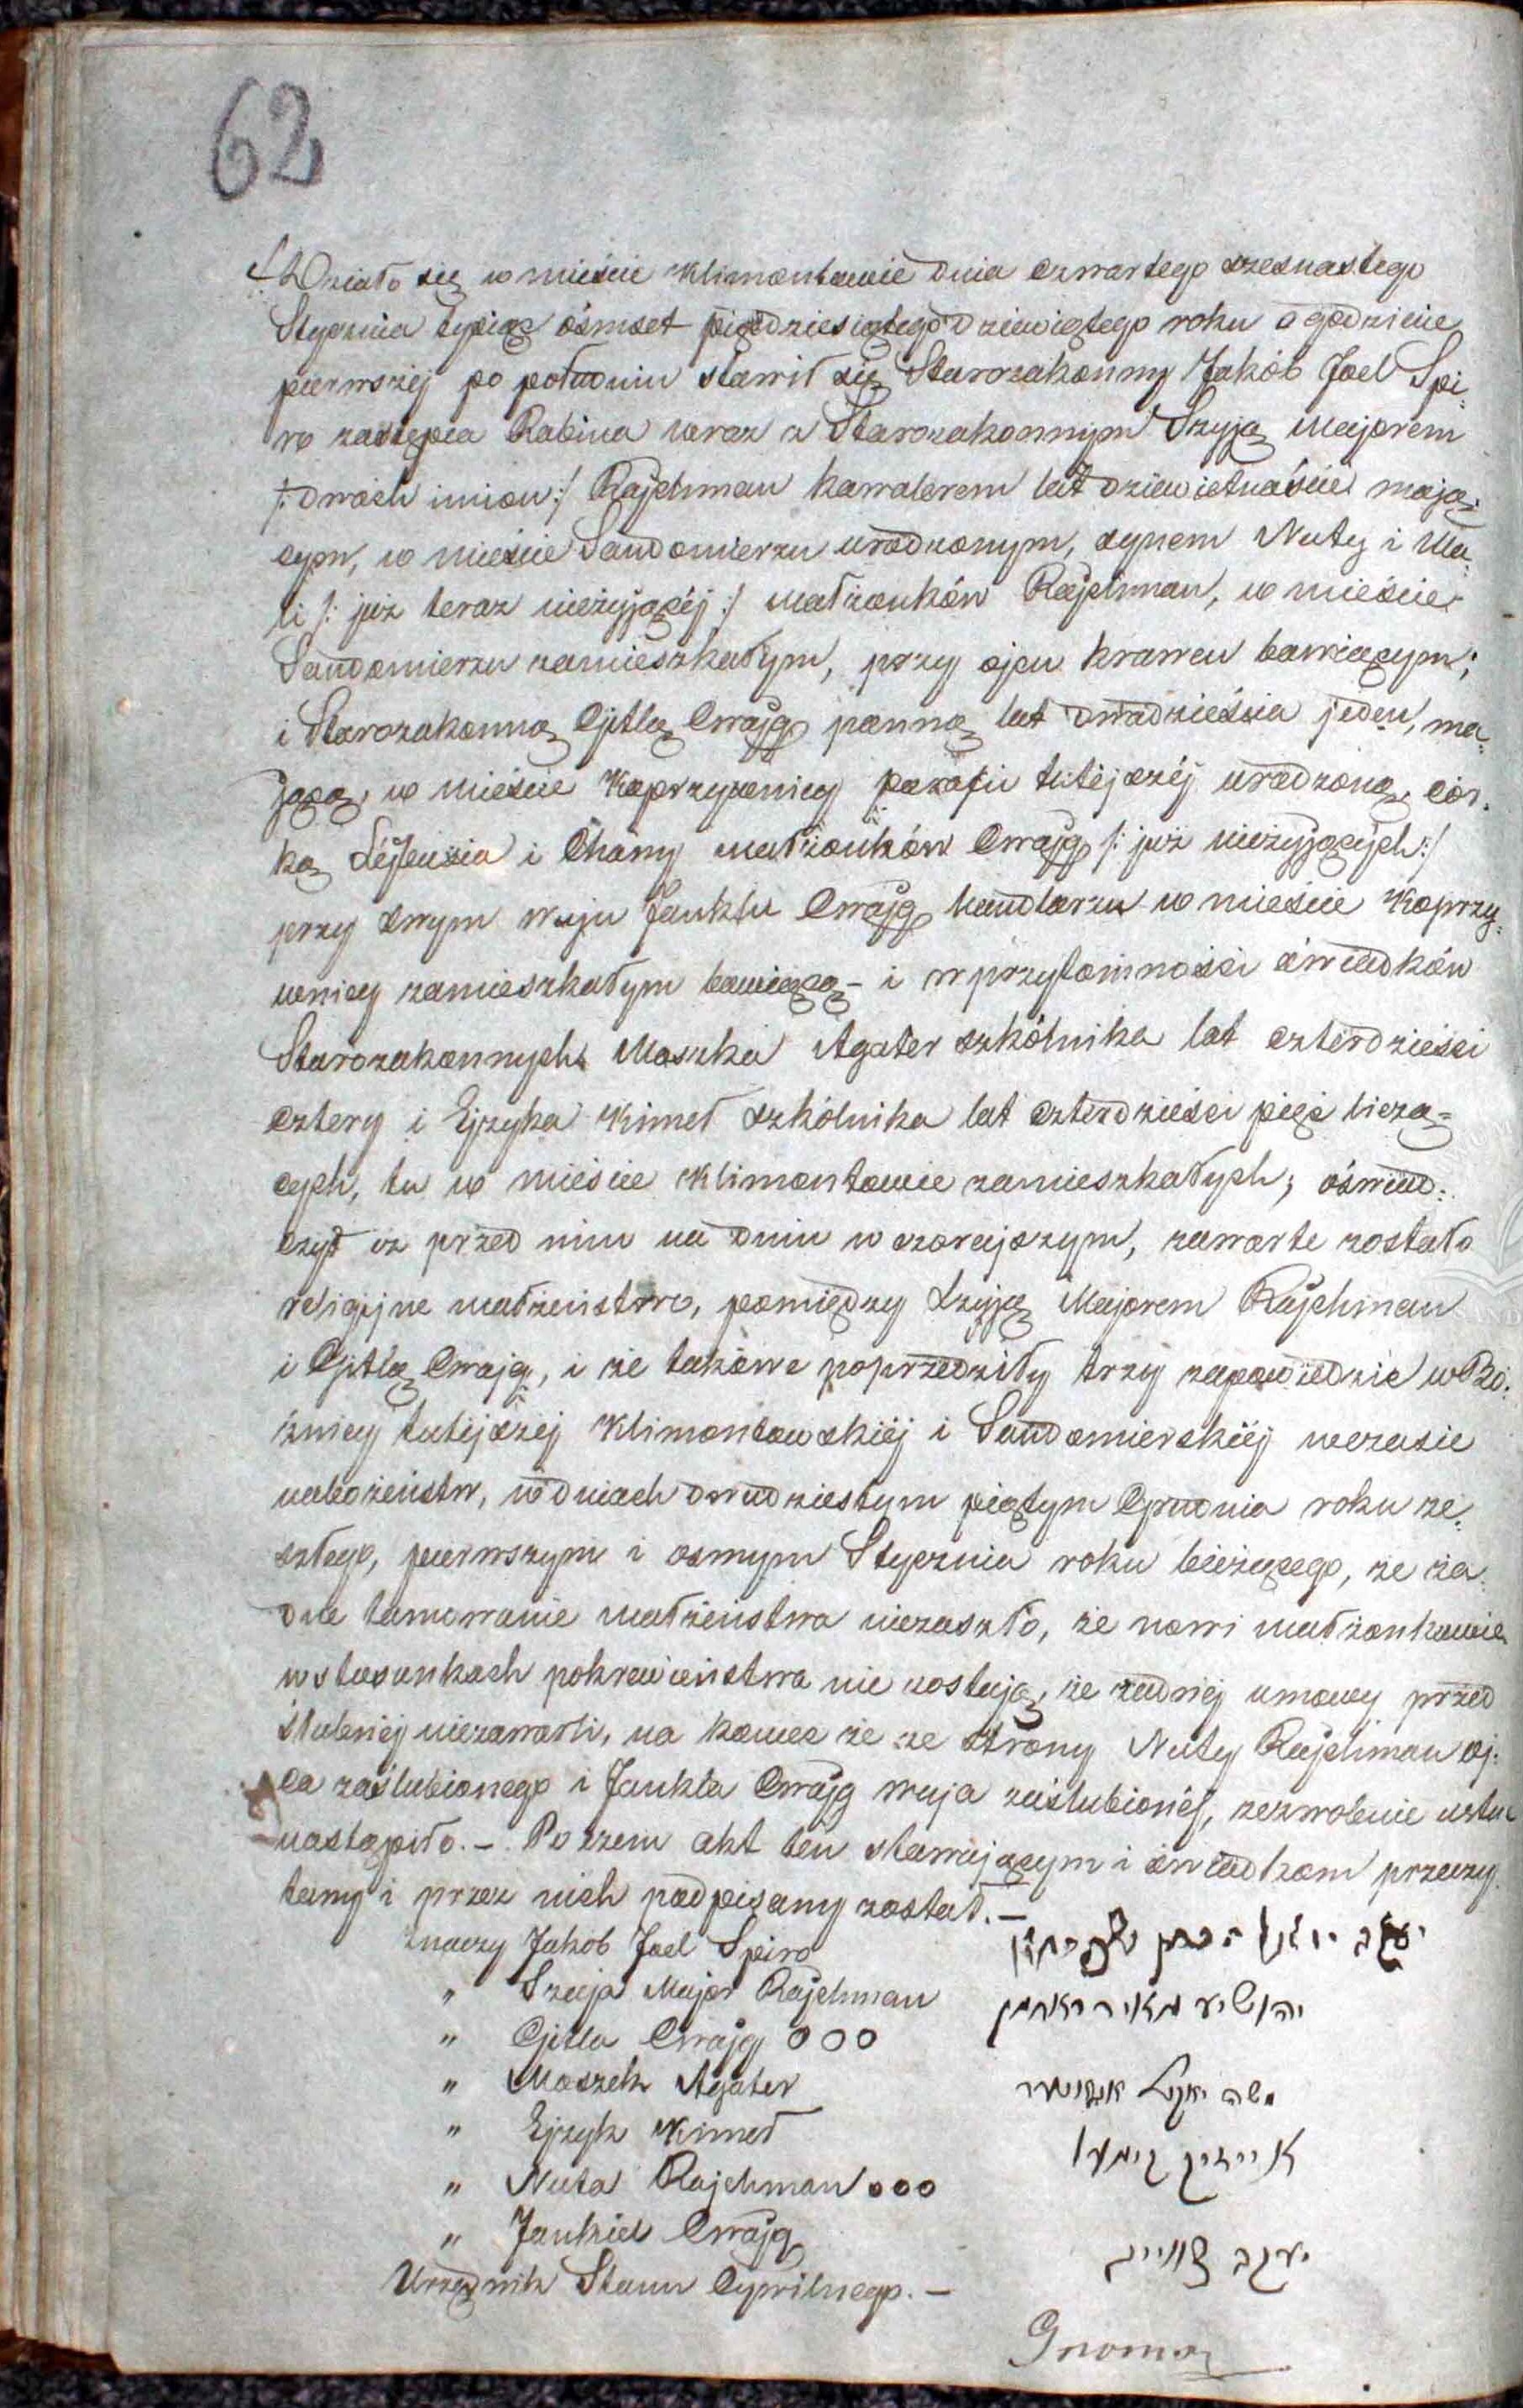 62
Działo się w mieście Klimontowie dnia czwartego szesnastego
Stycznia tysiąc ośmset pięddziesiątego dziewiątego roku o godzinie
pierwszej po południu stawił się Starozakonny Jakób Joel Spi:
ro zastępca Rabina wraz z Starozakonnym Szyją Majorem
/: dwóch imion :/ Rajchman kawalerem lat dziewietnaście mają:
cym, w mieście Sandomierzu urodzonym, synem Nuty i Ma:
li /: już teraz nieżyjącéj :/ małżonków Rajchman, w mieście
Sandomierzu zamieszkałym, przy ojcu krawcu bawiącym;
i Starozakonną Gitlą Cwajg panną lat dwadzieścia jeden, ma:
jącą, w mieście Koprzywnicy parafii tutéjszéj urodzoną, cór:
ką i Chany małżonków Cwajg /: już nieżyjących :/
przy swym wuju Janklu Cwajg handlarzu w mieście Koprzy:
wnicy zamieszkałym bawiącą – i w przytomności świadków
Starozakonnych Moszka Agater szkólnika lat czterdzieści
cztery i Ejzyka Kimel szkólnika lat czterdzieści pięć liczą=
cych, tu w mieście Klimontowie zamieszkałych; oświad:
czył iż przed nim na dniu wczorajszym, zawarte zostało
religijne małżeństwo, pomiędzy Szyją Majorem Rajchman
i Gitlą Cwajg, i że takowe poprzedziły trzy zapowiedzie w Bó:
żnicy tutéjszej Klimontowskiéj i Sandomierskiéj wczasie
nabożeństw, w dniach dwudziestym piątym Grudnia roku ze:
szłego, pierwszym i osmym Stycznia roku bieżącego, że ża:
dne tamowanie małżeństwa niezaszło, że nowi małżonkowie
w stosunkach pokrewieństwa nie zostają, że żadnéj umowy przed
ślubnéj niezawarli, na koniec że ze strony Nuty Rajchman oj:
ca zaślubionego i Jankla Cwajg wuja zaślubionéj, zezwolenie ustne
nastąpiło. – Po czem akt ten stawającym i świadkom przeczy:
tany i przez nich podpisany został. –
znaczy Jakób Joel Spiro
" Szyja Major Rajchman יהושיע מאיר
" Gitla Cwajg OOO
" Moszek Agater משה
" Ejzyk Kimel
" Nuta Rajchman ooo
" Jankiel Cwajg יעקב צווייג
Urzędnik Stanu Cywilnego. –